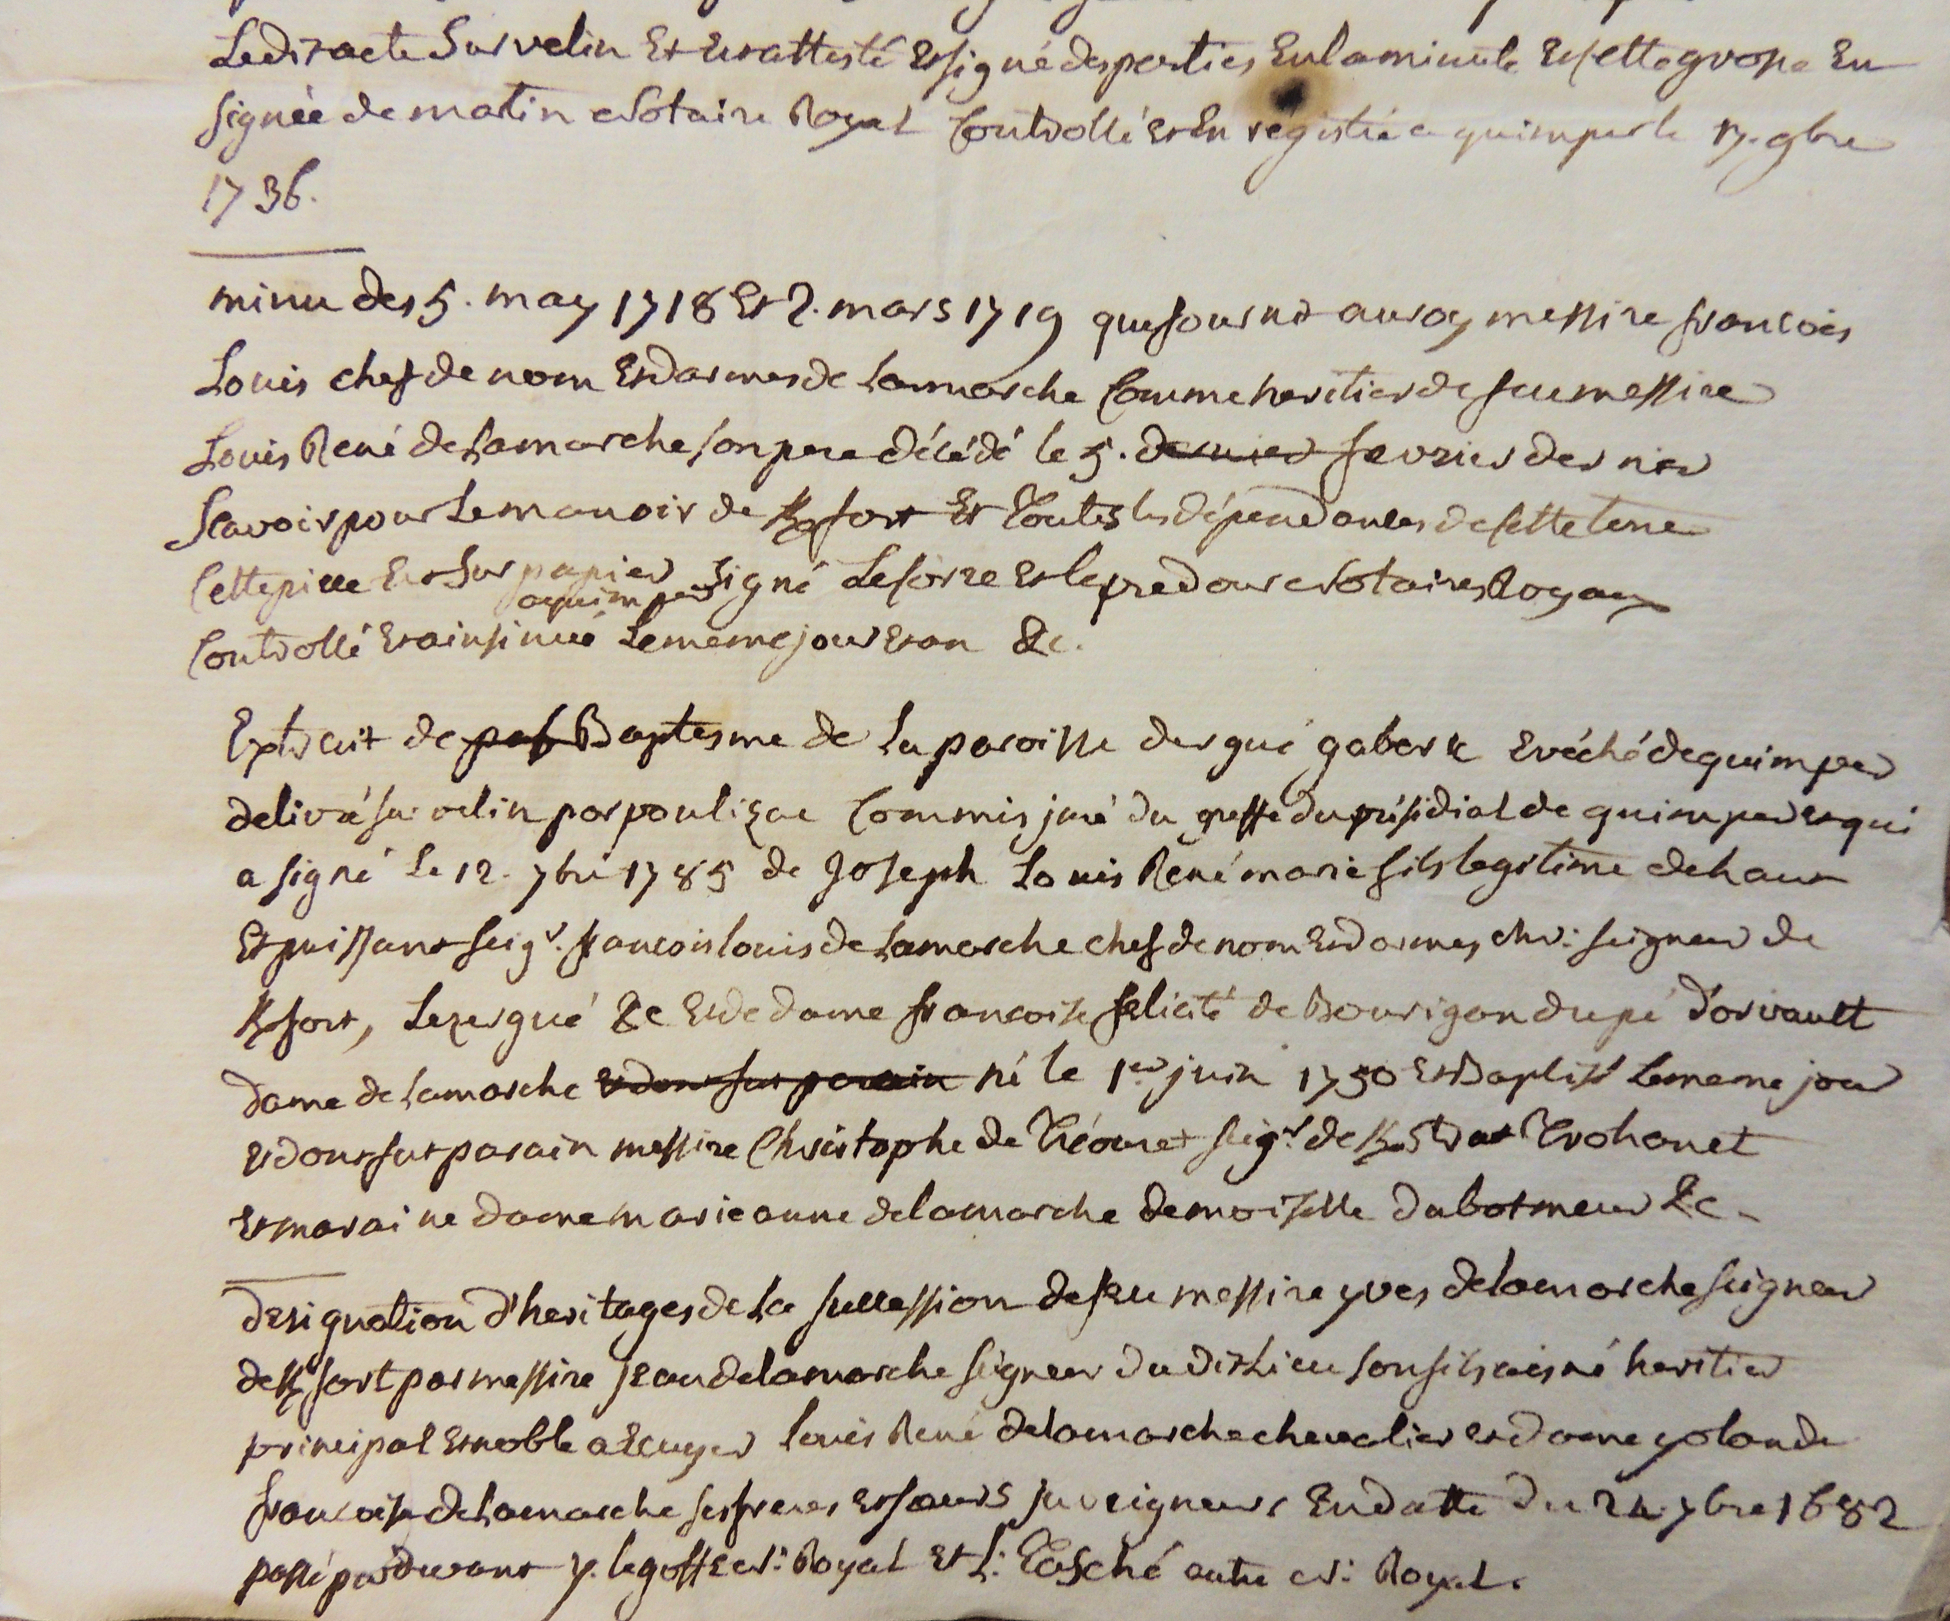 Ledit acte Sur velin Est Et attesté Et signé des parties En la minute Et cette grosse En
signée de martin Notaire Royal Controllé et En régistré a quimper le 17. 9bre
1736.
minu des 5. may 1718 Et 2. mars 1719 que fournit au roy messire francois
Louis chef de nom Et d'armes de Lamarche Comme heritier de feu messire
Louis René de Lamarche son pere décédé le 5. dernier fevrier dernier
Scavoir pour Le manoir de Kfort Et Toutes les dépendances de cette terre
Cette piece Est Sur papier signé Lesorre et le predour Notaires Royaux
a quimper
Controllé et insinué Le meme jour et an &c.
Extrait de pab Baptesme de La paroisse dergué gaberic Evéché de quimper
delivré sur velin par poulizac Commis juré du greffe du présidial de quimper et qui
a signé Le 12. 7bre 1785 de Joseph Louis René marie fils legitime de haut
Et puissant seigr. francois louis de Lamarche chef de nom Et d'armes chr: seigneur de
Kfort, Lezergué &c Et de dame francoise felicité de Bourigan dupé d'orvault
dame de Lamarche et dont fut parain né le 1er juin 1750 Et Baptisé Le meme jour
et dont fut parain messire Christophe de Tréouret seigr de Kstrat Trohanet
et maraine dame marie anne delamarche demoiselle dubotmeur &c.
designation d'heritages de La succession de feu messire yves delamarche seigneur
de Kfort par messire jean delamarche seigneur dudit Lieu son fils aisné heritier
principal et noble a Ecuyer Louis René delamarche chevalier et dame yolande
francoise delamarche ses freres et soeurs juveigneurs En datte du 24. 7bre 1682
passé pardevant y. le goff N: Royal Et L: autre N: Royal.